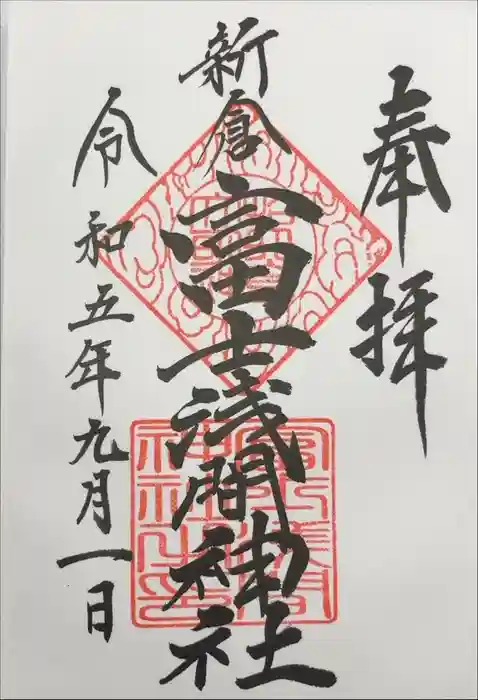 奉拝
新倉富士浅間神社
令和五年九月一日